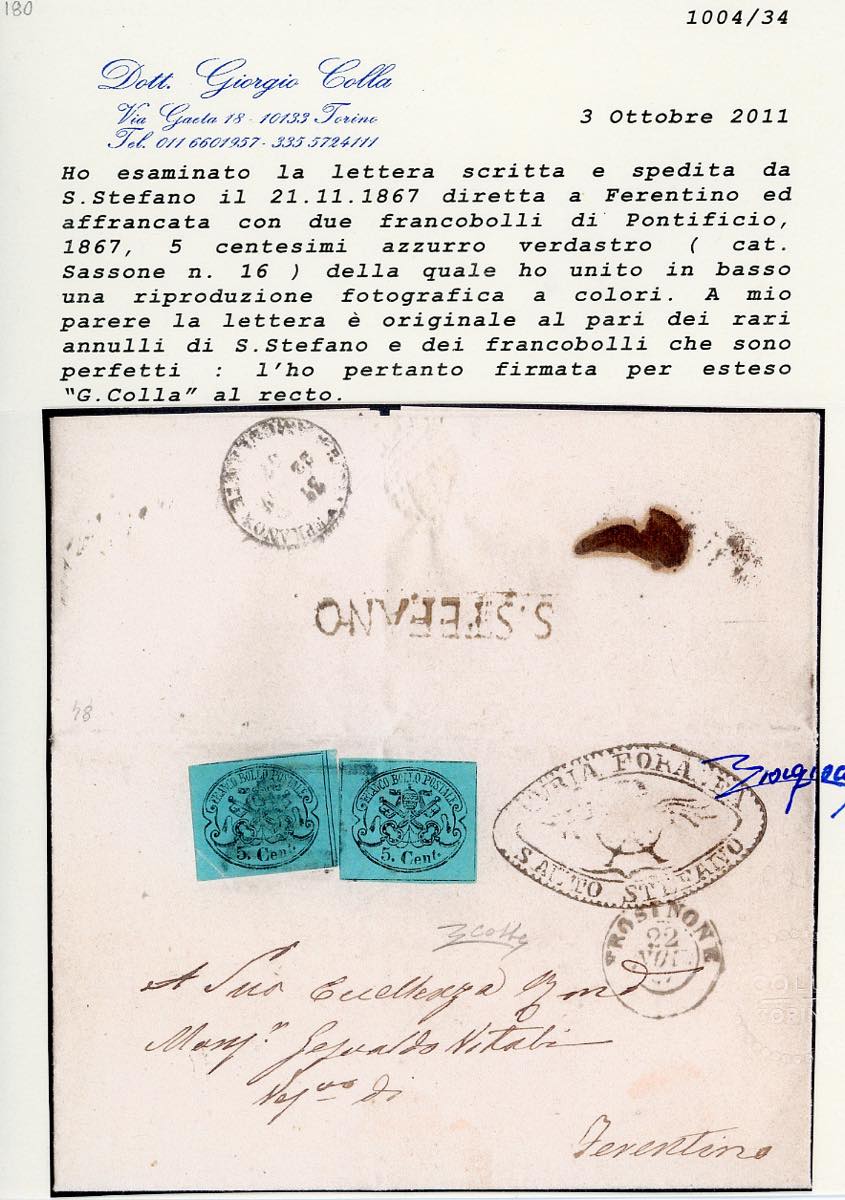 180
1004/34
Dott. Giorgio Colla
Via Gaeta 18 - 10133 Torino
Tel. 011 6601957 - 335 5724111
3 Ottobre 2011
Ho esaminato la lettera scritta e spedita da
S.Stefano il 21.11.1867 diretta a Ferentino ed
affrancata con due francobolli di Pontificio,
1867, 5 centesimi azzurro verdastro ( cat.
Sassone n. 16 ) della quale ho unito in basso
una riproduzione fotografica a colori. A mio
parere la lettera è originale al pari dei rari
annulli di S.Stefano e dei francobolli che sono
perfetti : l'ho pertanto firmata per esteso
"G.Colla" al recto.
S.STEFANO
84
FRANCO BOLLO POSTALE
5. Cent.
FRANCO BOLLO POSTALE
5. Cent.
CURIA FORANEA
SANTO STEFANO
FROSINONE
22
NOV
A Sua Eccellenza
Monsr Gesualdo Vitali
di
Ferentino